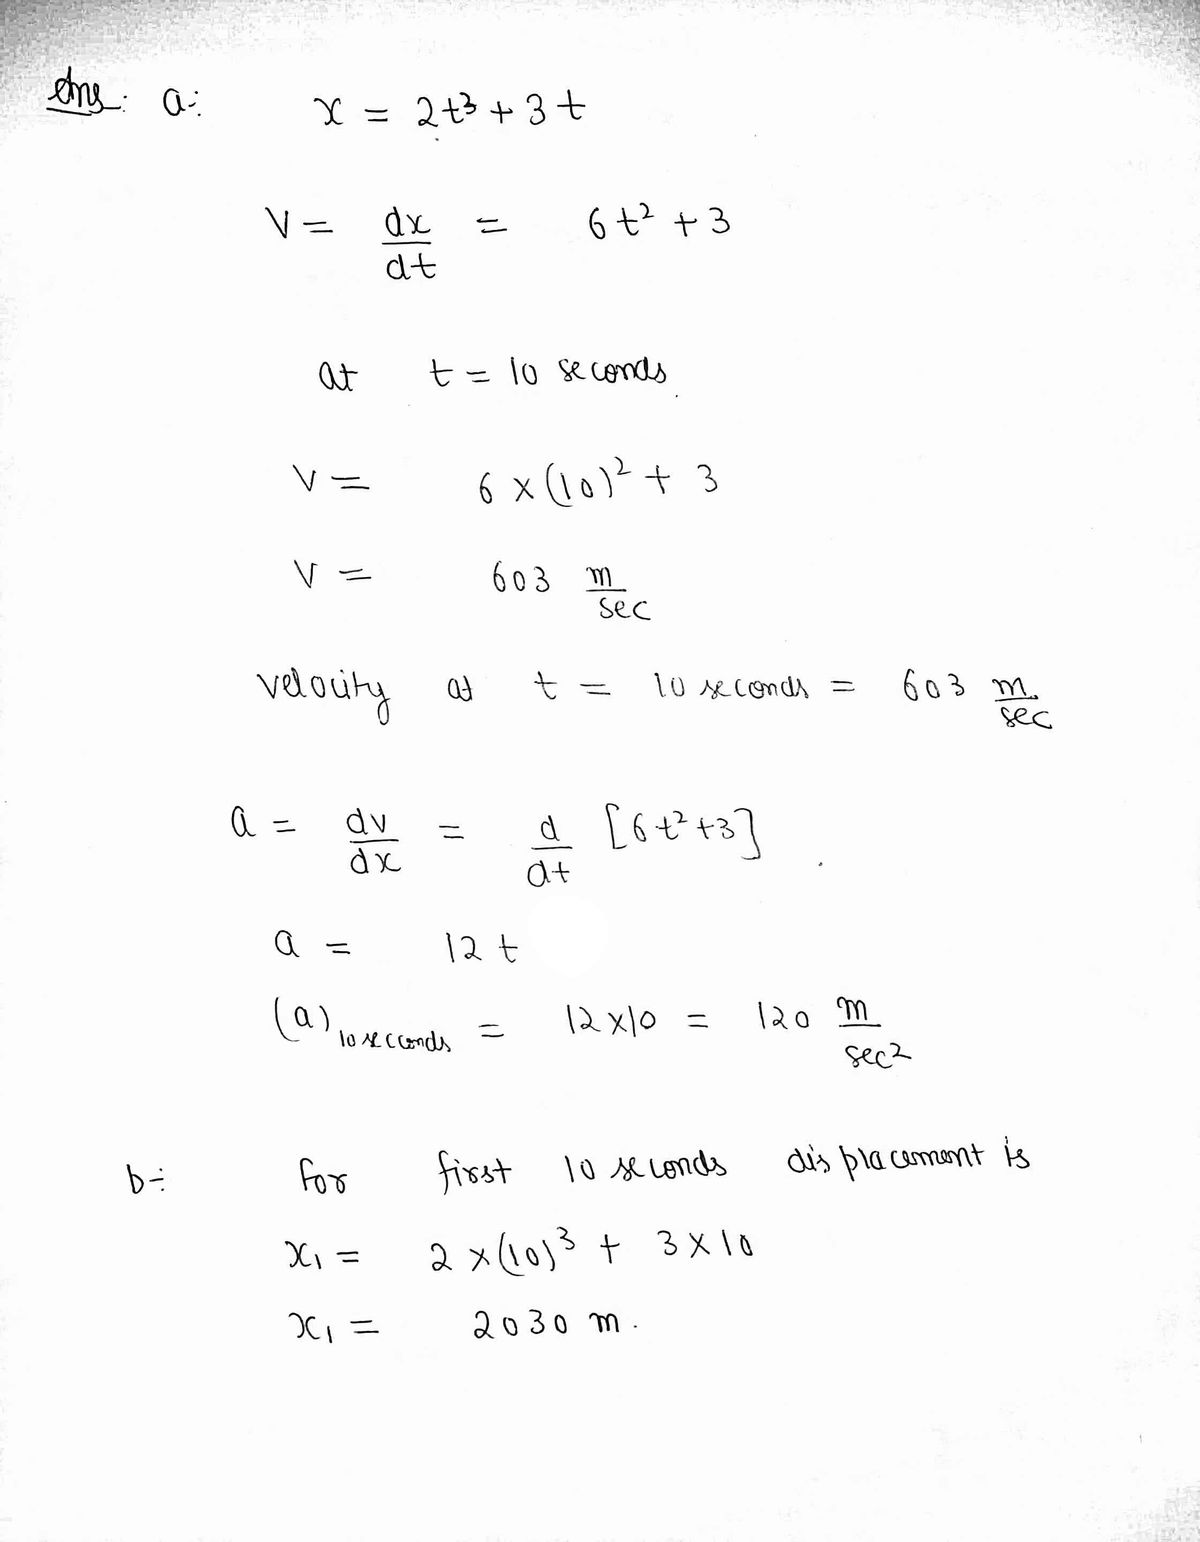 Ans: a:- x = 2t³ + 3t
V = dx/dt = 6t² + 3
at t = 10 seconds
V = 6 × (10)² + 3
V = 603 m/sec
velocity at t = 10 seconds = 603 m/sec
a = dv/dx = d/dt [6t² + 3]
a = 12t
(a)10 seconds = 12 × 10 = 120 m/sec²
b:- for first 10 seconds displacement is
x₁ = 2 × (10)³ + 3 × 10
x₁ = 2030 m.